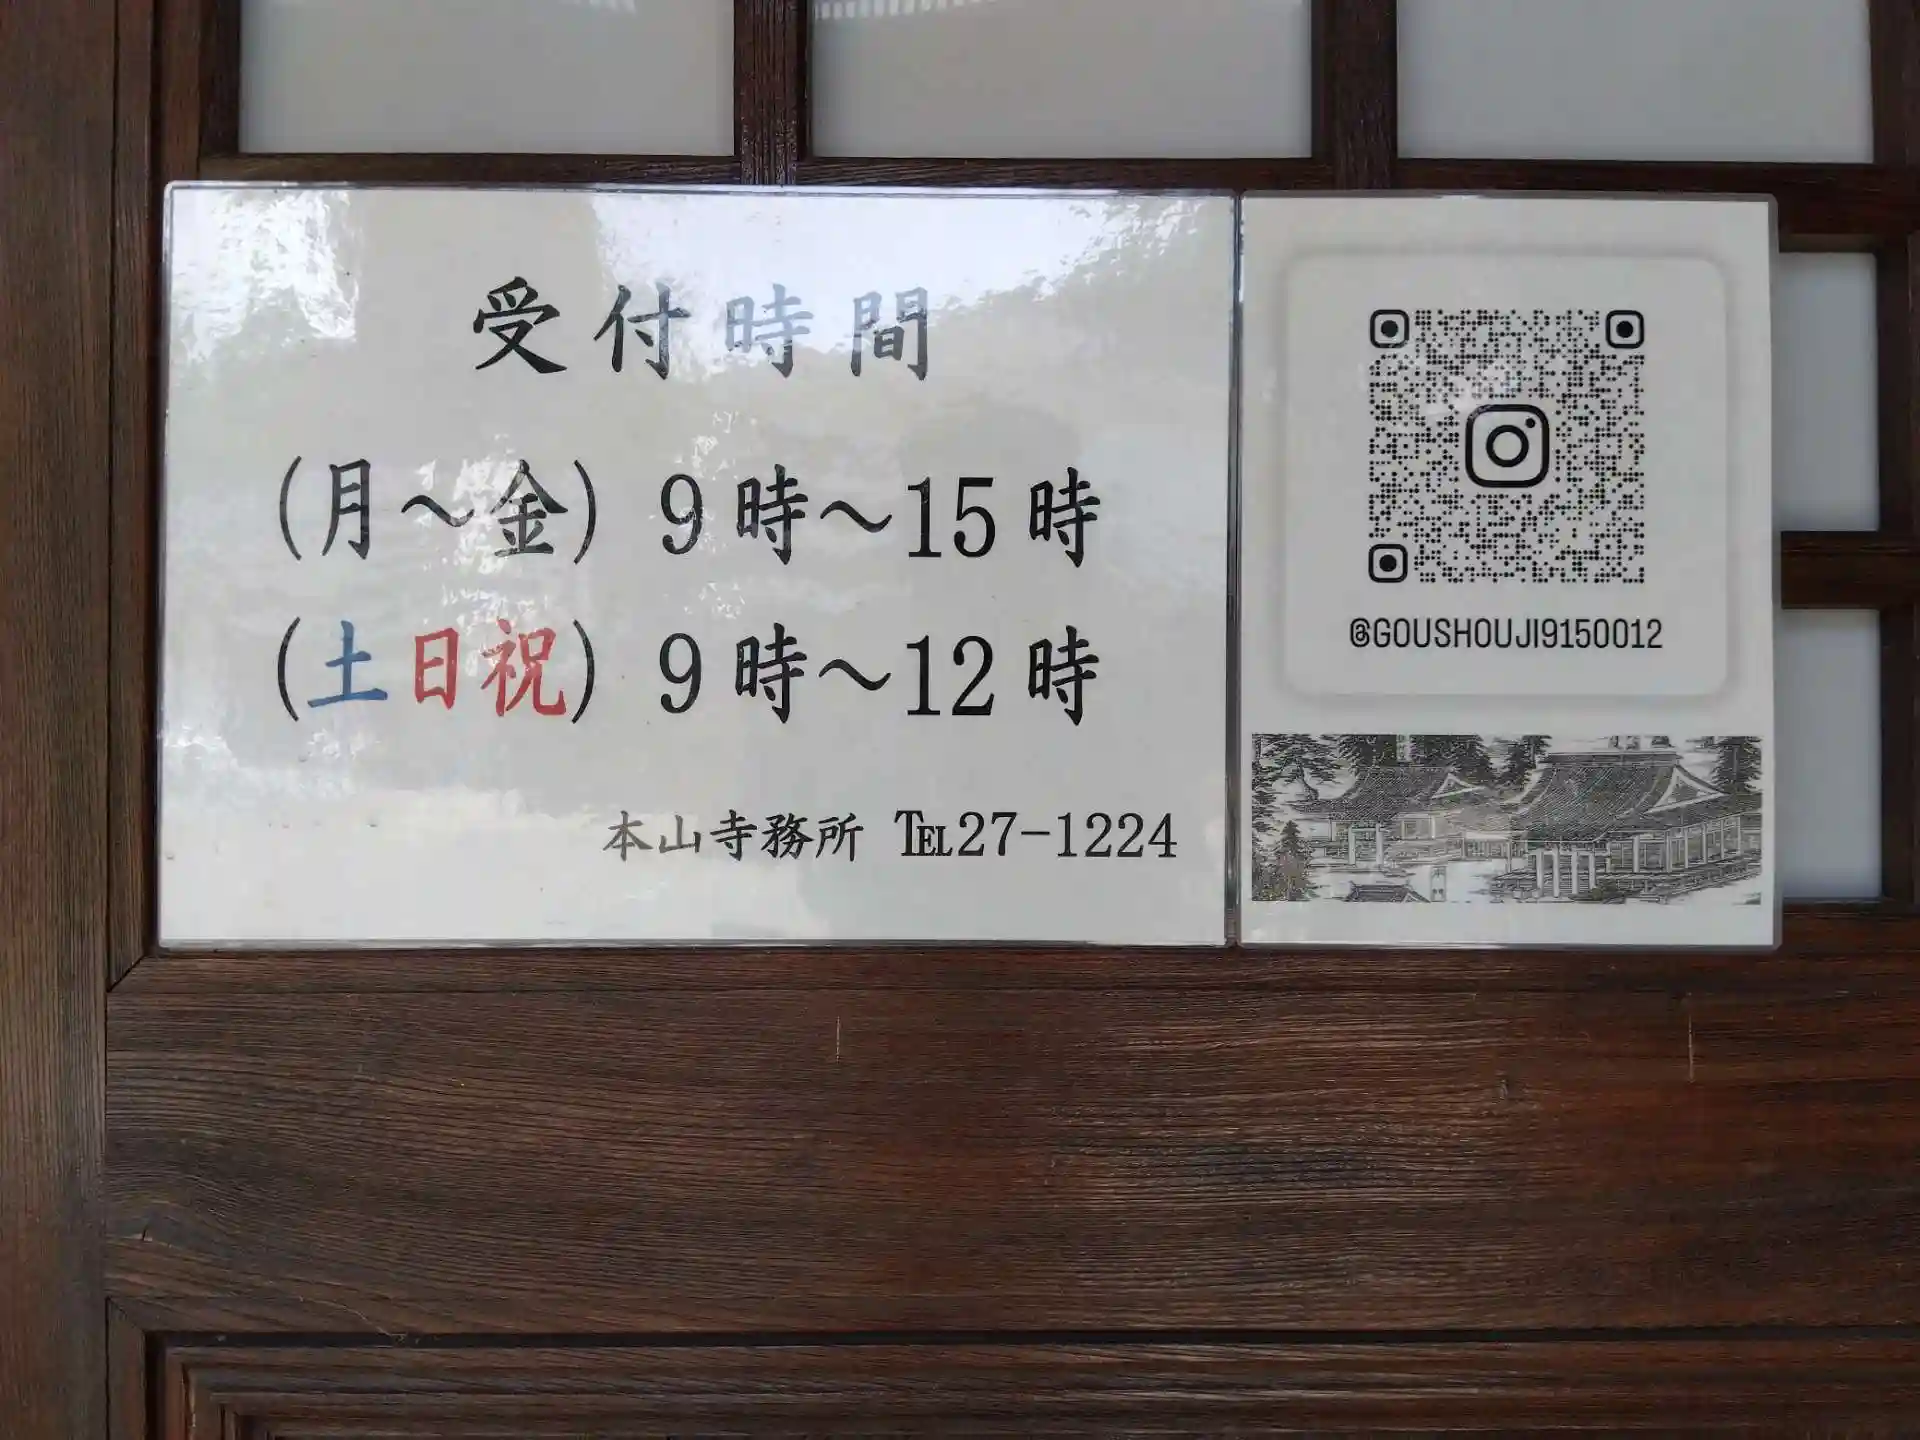 受付時間
(月～金) 9時～15時
(土日祝) 9時～12時
本山寺務所 ℡27-1224
@GOUSHOUJI9150012